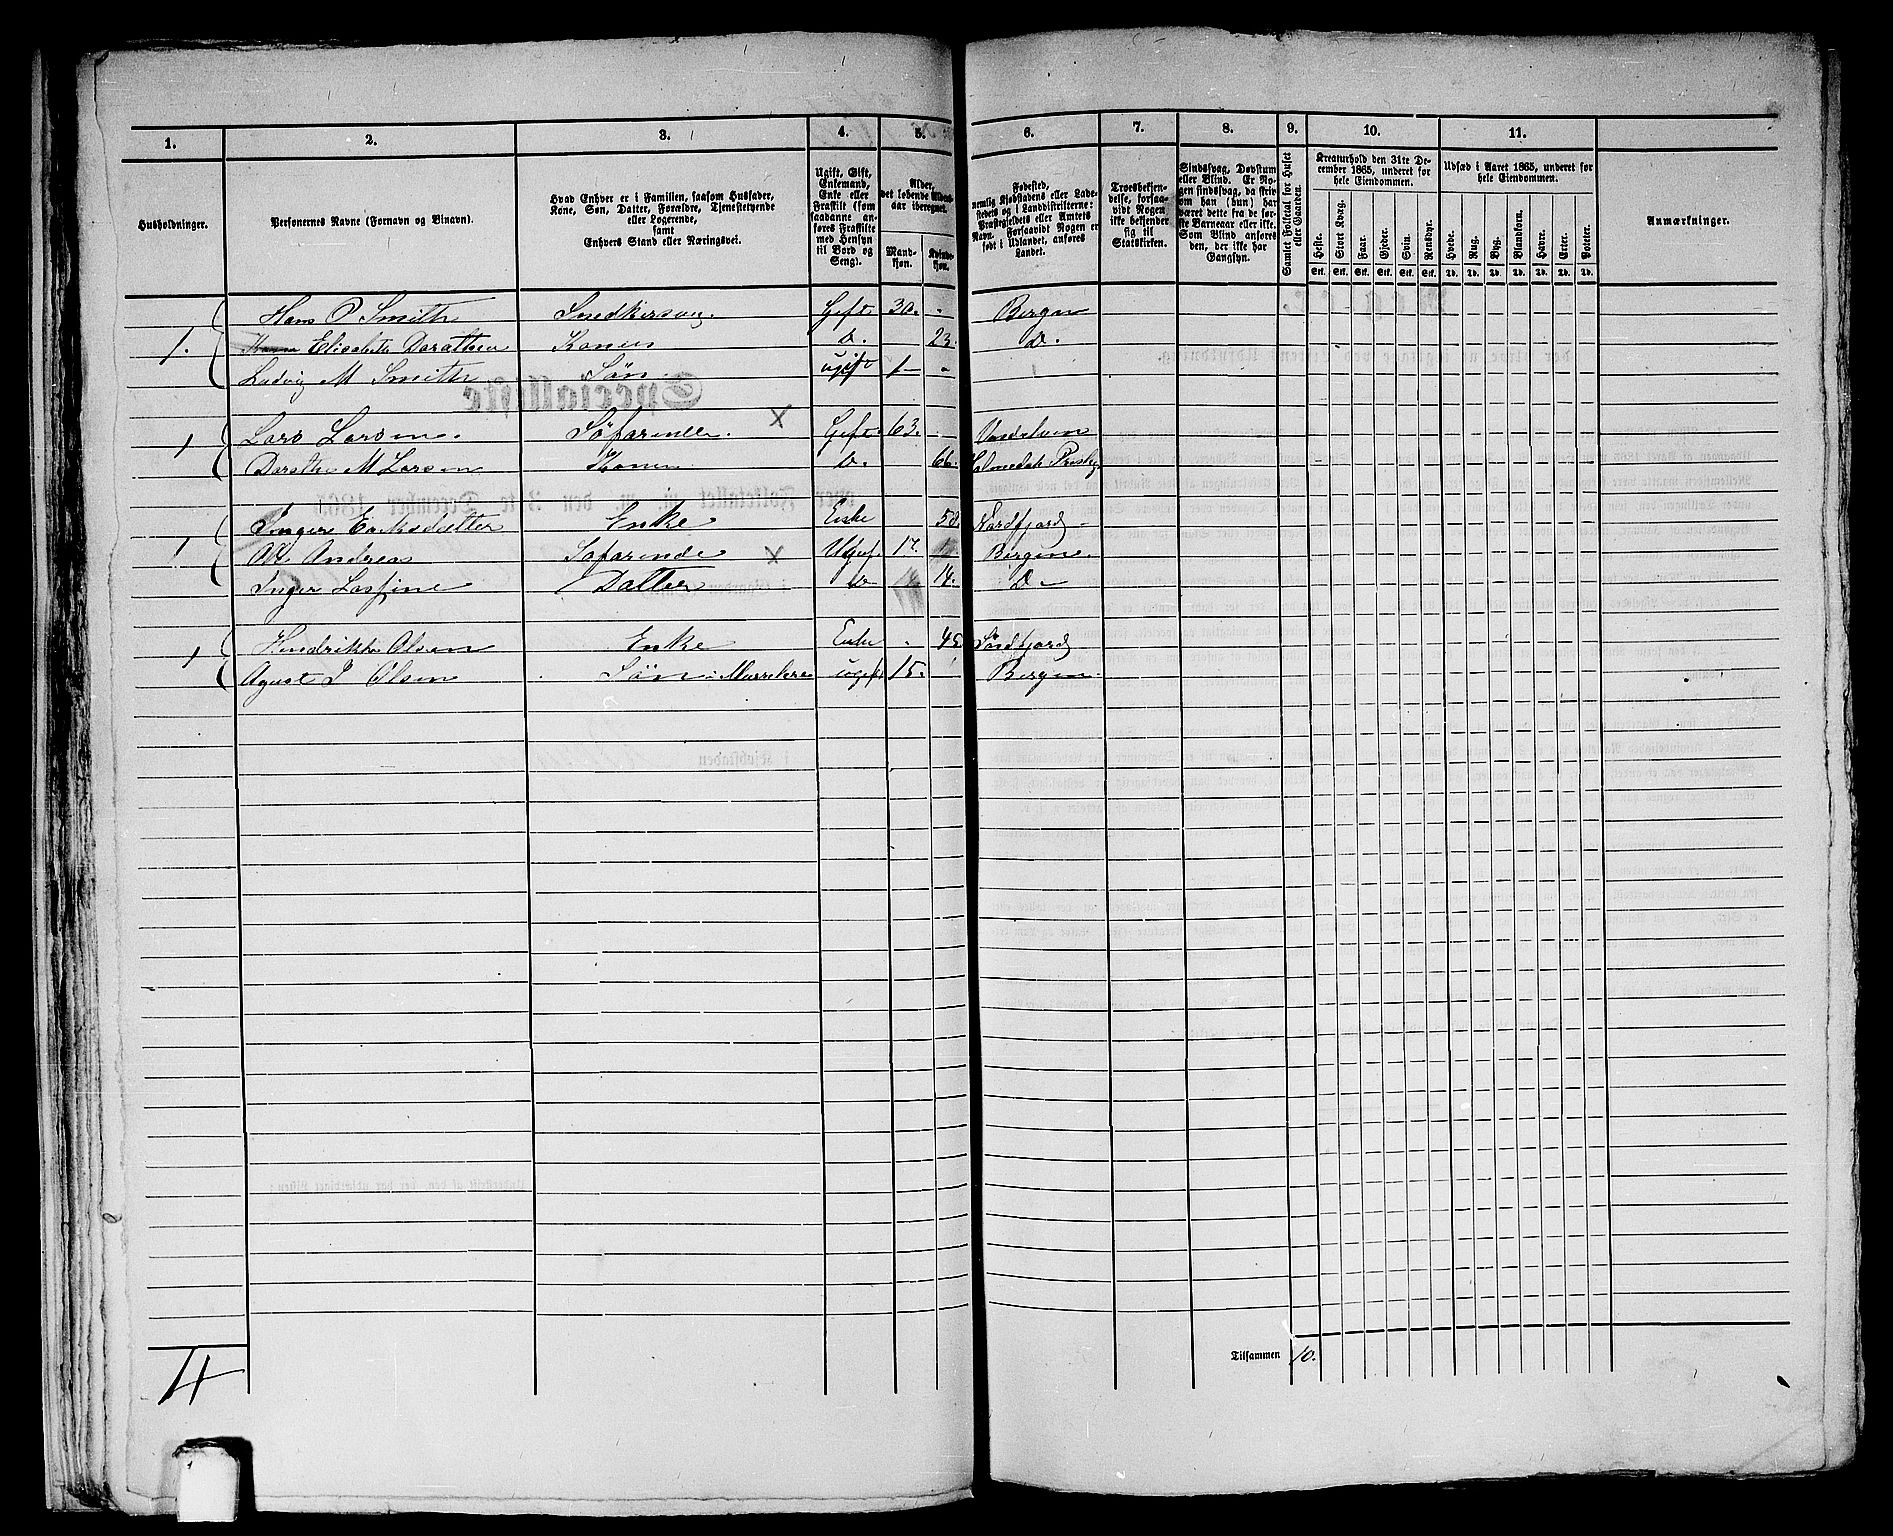 1. 2. 3. 4. 5. 6. 7. 8. 9. 10. 11.
Husholdninger.
Personernes Navne (Fornavn og Binavn).
Hvad Enhver er i Familien, saasom Husfader,
Kone, Søn, Datter, Forældre, Tjenestetyende
eller Logerende,
samt
Enhvers Stand eller Næringsvei.
Ugift, Gift,
Enkemand,
Enke eller
Fraskilt (som
saadanne an-
føres Fraskilte
med Hensyn
til Bord og
Seng).
Alder,
det løbende Alders-
aar iberegnet.
Mand-
kjøn.
Kvinde-
kjøn.
Fødested,
nemlig Kjøbstadens eller Lade-
stedets og i Landdistrikterne:
Præstegjeldets eller Amtets
Navn. Forsaavidt Nogen er
født i Udlandet, anføres
Landet.
Troesbekjen-
delse, forsaa-
vidt Nogen
ikke bekjender
sig til
Statskirken.
Sindssvag, Døvstum
eller Blind. Er No-
gen sindssvag, da skriv
om han (hun) har
været dette fra de før-
ste Barneaar eller ikke.
Som Blind anføres
den, der ikke har
Gangsyn.
Samlet Folketal for Huset
eller Gaarden.
Kreaturhold den 31te De-
cember 1865, underet for
hele Eiendommen.
Heste. Stort Kvæg. Faar. Gjeder. Svin. Rensdyr.
Stk. Stk. Stk. Stk. Stk. Stk.
Udsæd i Aaret 1865, underet for
hele Eiendommen.
Hvede. Rug. Byg. Blandkorn. Havre. Erter. Poteter.
Td. Td. Td. Td. Td. Td. Td.
Anmærkninger.
Hans P Smith Snedkersvg. Gift 30. - Bergen
1. Elisabeth Dorathea Konen D. 23. D.
Ludvig M Smith Søn ugift 1 -
1 Lars Larsen. Søfarende. X Gift 63. -
Dorothe M Larsen Konen D. 66. Holmedals Prestg
Ingere Enke Enke 58. Nordfjord
1 Andreas Søfarende X Ugift 17. Bergen.
Inger Datter D 14. D
1 Hendrikke Olsen Enke Enke - 45 Søndfjord
August J Olsen Søn ugift 15. Bergen.
4
Tilsammen 10.